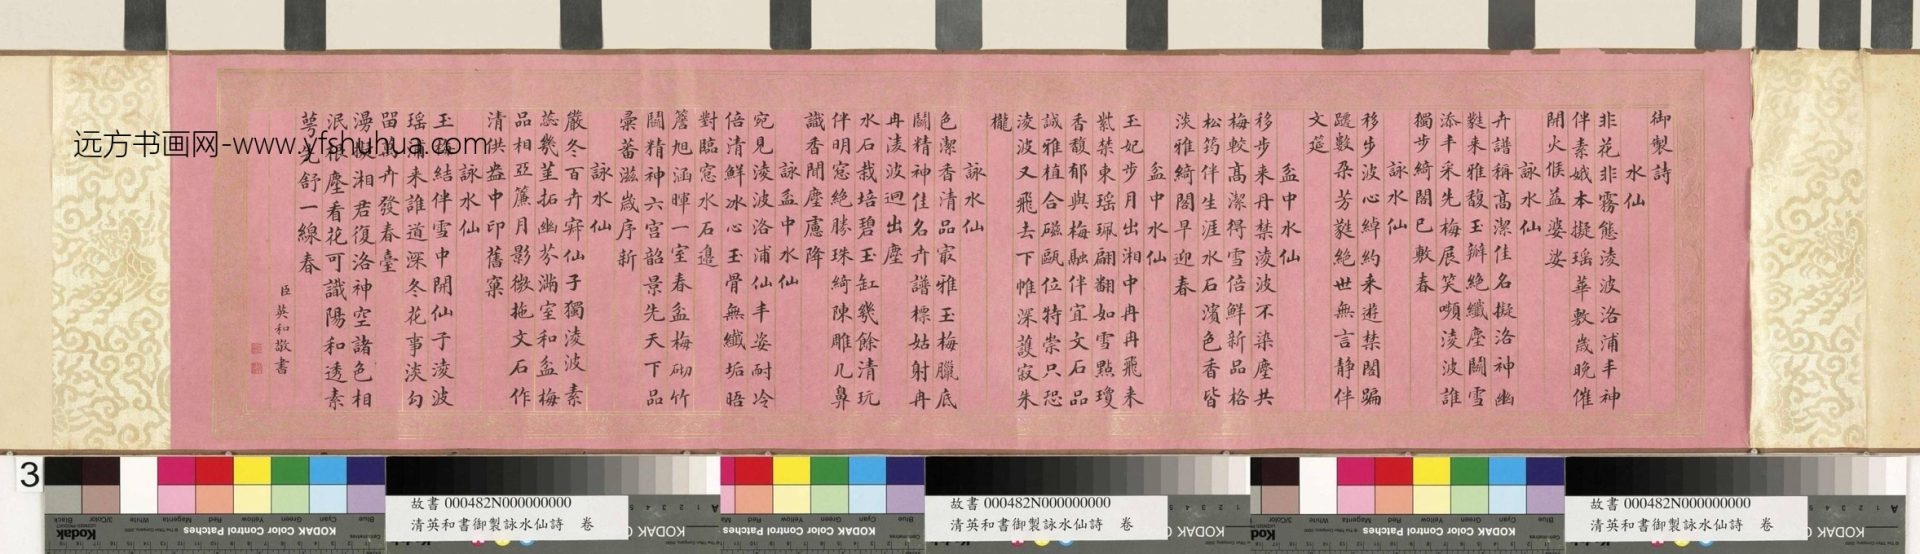 御製詩
水仙
非花非霧態凌波洛浦丰神
伴素娥本擬瑶華敷歲晚催
開火候益婆娑
詠水仙
卉譜稱高潔佳名擬洛神幽
㽔來雅馥玉瓣絶纖塵鬭雪
添丰采先梅展笑嚬凌波誰
獨步綺閣已敷春
詠水仙
移步波心綽約来逰禁閣騙
躚數朶芳㽔絶世無言静伴
文筵
盆中水仙
移步来丹禁淩波不染塵共
梅較高潔得雪倍鮮新品格
松筠伴生涯水石濱色香皆
淡雅綺閣早迎春
盆中水仙
玉妃步月出湘中冉冉飛来
紫禁東瑶珮翩翻如雪點瓊
香馥郁與梅融伴宜文石品
誠雅植合磁甌位特崇只恐
淩波又飛去下帷深護寂朱
櫳
詠水仙
色潔香清品㝡雅玉梅臘底
鬭精神佳名卉譜標姑射冉
冉淩波迥出塵
水石栽培碧玉缸幾餘清玩
伴明窓絶勝珠綺陳雕几鼻
識香聞塵慮降
詠盆中水仙
宛見淩波洛浦仙丰姿耐冷
倍清鮮冰心玉骨無纖垢晤
對臨窓水石邊
簷旭涵暉一室春盆梅砌竹
鬭精神六宫韶景先天下品
彙蕃滋歲序新
詠水仙
嚴冬百卉寂仙子獨淩波素
蕊幾莖拓幽芬滿室和盆梅
品相亞簾月影微拖文石作
清供盎中印舊窠
詠水仙
玉結伴雪中開仙子淩波
瑶浦来誰道深冬花事淡勻
留萬卉發春臺
湯湘君復洛神空諸色相
泯根塵看花可識陽和透素
萼先舒一線春
臣英和敬書
远方书画网-www.yfshuhua.com
3
故書 000482N000000000
清英和書御製詠水仙詩 卷
故書 000482N000000000
清英和書御製詠水仙詩 卷
故書 000482N000000000
清英和書御製詠水仙詩 卷
KODAK Color Control Patches
Kodak
KODAK
Blue Cyan Green Yellow Red Magenta White 3/Color Black